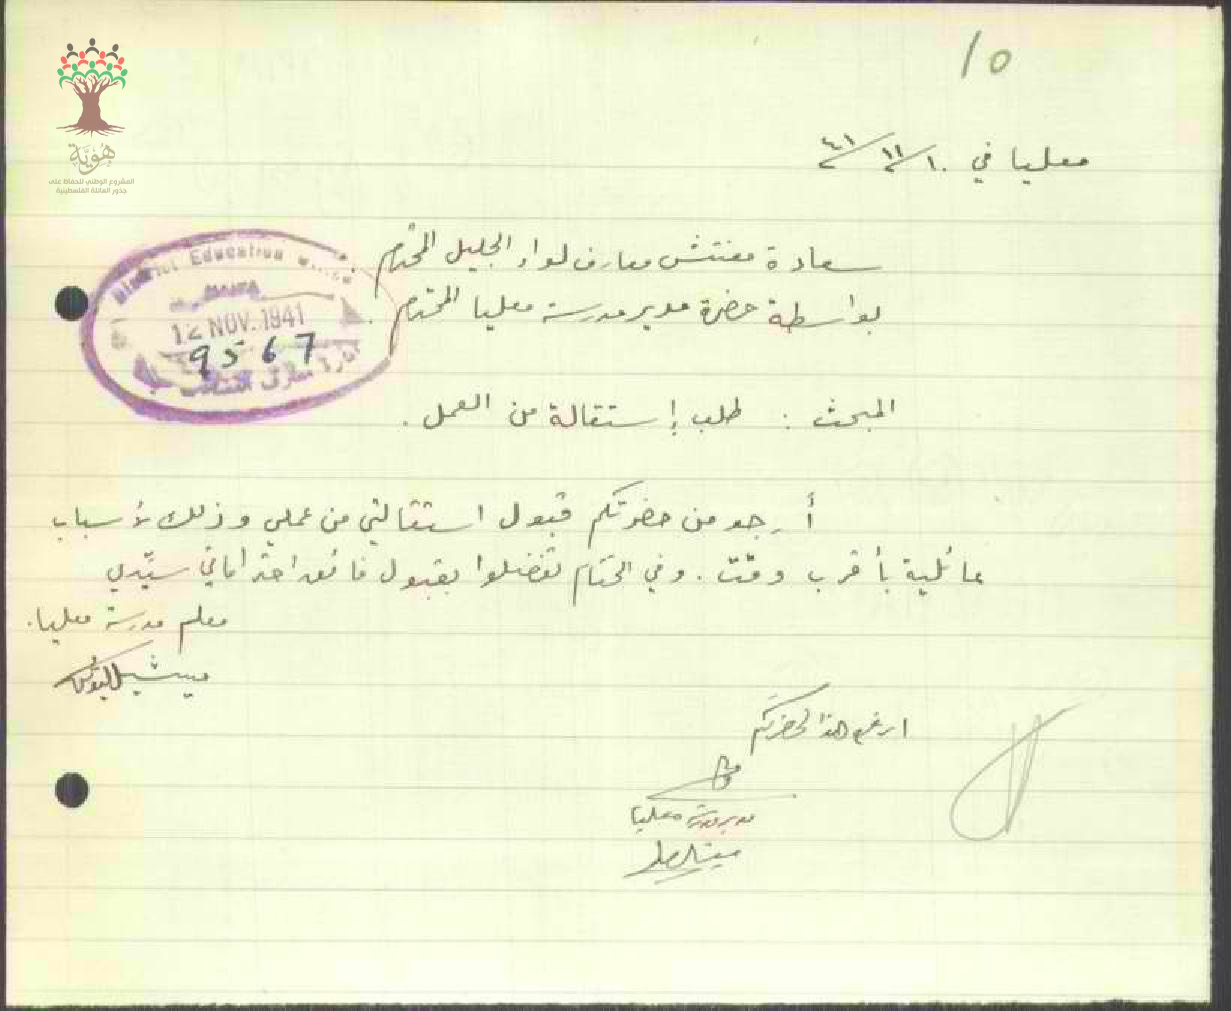 10
معليا في ١٠/١١/٤١
هُوِيَّة
المشروع الوطني للحفاظ على
جذور العائلة الفلسطينية
سعادة مفتش معارف لواء الجليل المحترم .
بواسطة حضرة مدير مدرسة معليا المحترم .
District Education Office
HAIFA
12 NOV. 1941
9567
المبحث : طلب إستقالة من العمل .
أرجو من حضرتكم قبول استقالتي من عملي وذلك لأسباب
عائلية بأقرب وقت . وفي الختام تفضلوا بقبول فائق احتراماتي سيّدي
معلم مدرسة معليا .
ميشيل
ارفع هذا لحضرتكم
مدير مدرسة معليا